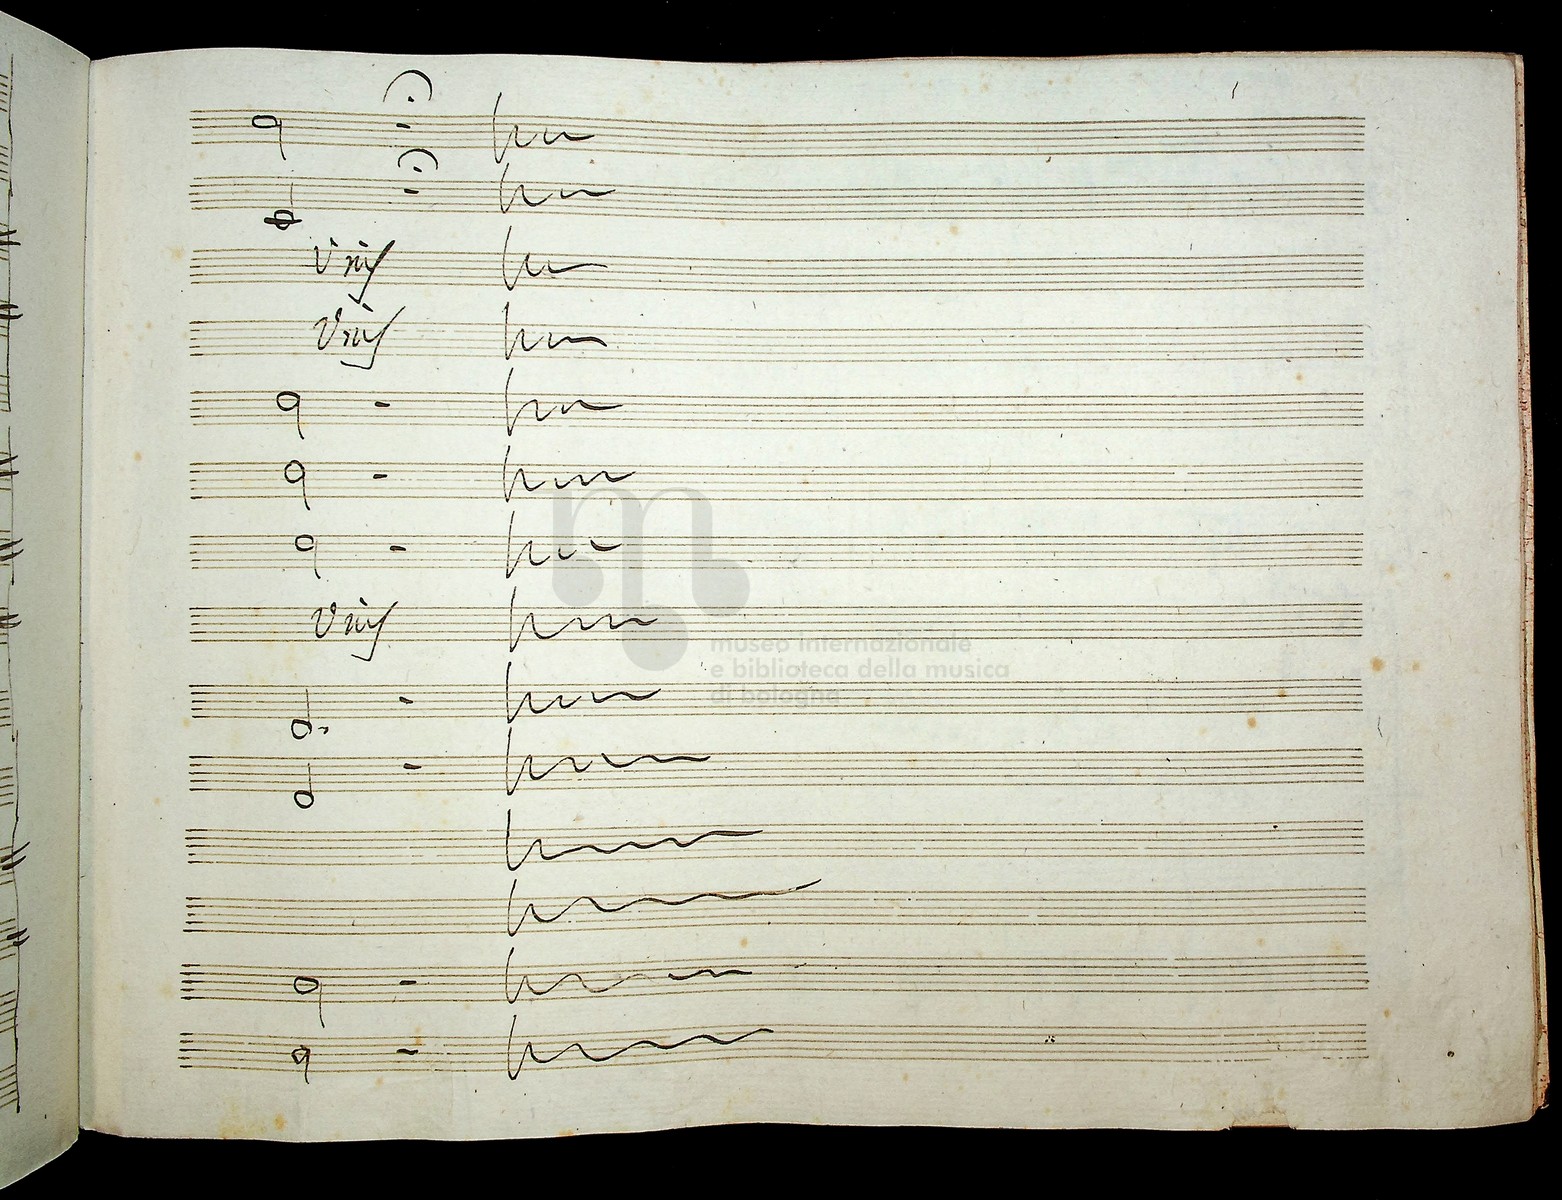 Unis
Unis
Unis
museo internazionale
e biblioteca della musica
di bologna